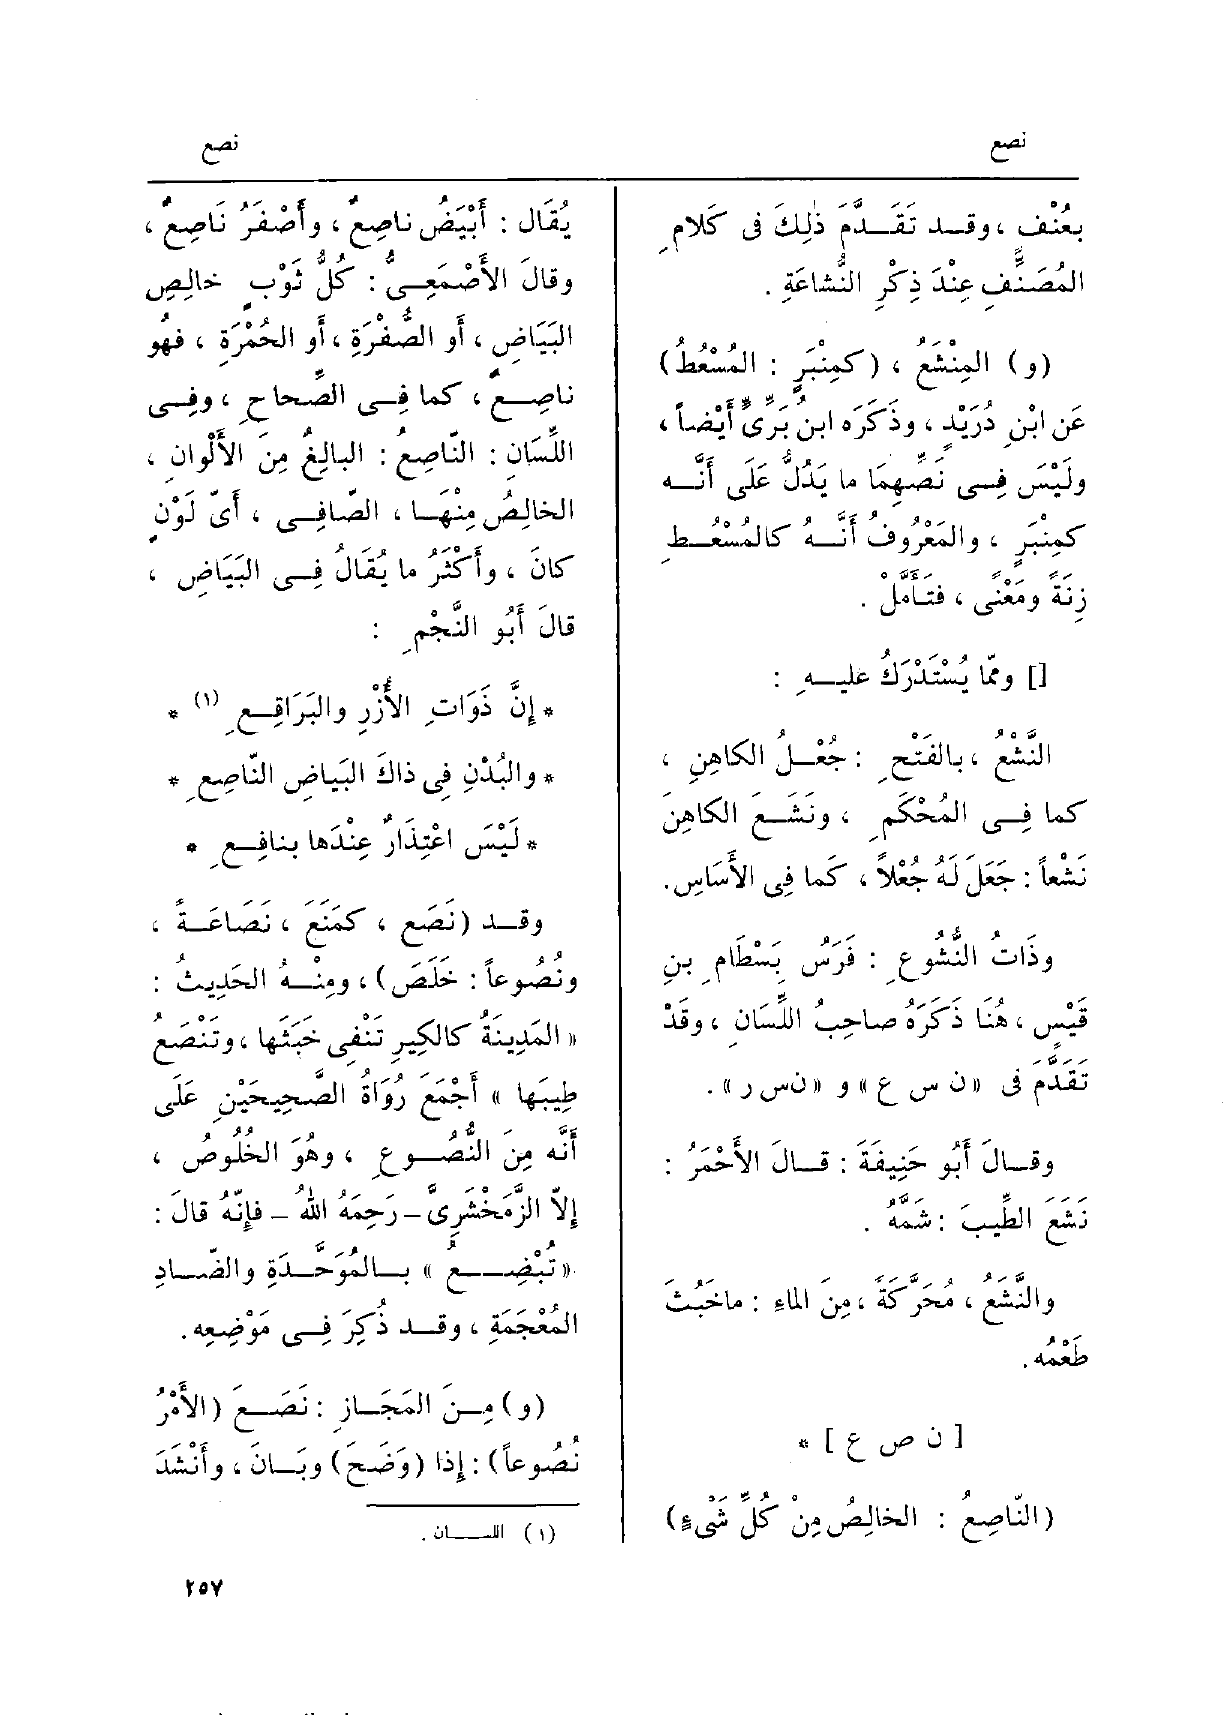 نصع
نصع
بعُنْف ، وقد تَقَدَّمَ ذٰلِكَ فى كَلامِ
المُصَنِّفِ عِنْدَ ذِكْرِ النُّشاعَةِ .
(و) المِنْشَعُ ، (كمِنْبَرٍ : المُسْعُطُ)
عَن ابْنِ دُرَيْدٍ ، وذَكَرَه ابنُ بَرِّىٍّ أَيْضاً ،
ولَيْسَ فِى نَصِّهِمَا ما يَدُلُّ عَلَى أَنَّه
كمِنْبَرٍ ، والمَعْرُوفُ أَنَّهُ كالمُسْعُطِ
زِنَةً ومَعْنًى ، فتَأَمَّلْ .
[] وممّا يُسْتَدْرَكُ عليهِ :
النَّشْعُ ، بالفَتْحِ : جُعْلُ الكاهِنِ ،
كما فِى المُحْكَمِ ، ونَشَعَ الكاهِنَ
نَشْعاً : جَعَلَ لَهُ جُعْلاً ، كَما فِى الأَسَاسِ.
وذَاتُ النُّشُوعِ : فَرَسُ بَسْطَامِ بنِ
قَيْسٍ ، هُنَا ذَكَرَهُ صاحِبُ اللِّسَانِ ، وقَدْ
تَقَدَّمَ فى «ن س ع» و «ن س ر» .
وقالَ أَبُو حَنِيفَةَ : قالَ الأَحْمَرُ :
نَشَعَ الطِّيبَ : شَمَّهُ .
والنَّشَعُ ، مُحَرَّكَةً ، مِنَ الماءِ : ماخَبُثَ
طَعْمُه .
[ ن ص ع ] *
(النّاصِعُ : الخالِصُ مِنْ كُلِّ شَىْءٍ)
يُقَال : أَبْيَضُ ناصِعٌ ، وأَصْفَرُ نَاصِعٌ ،
وقالَ الأَصْمَعِىُّ : كُلُّ ثَوْبٍ خالِصِ
البَيَاضِ ، أَو الصُّفْرَةِ ، أَو الحُمْرَةِ ، فهُو
ناصِعٌ ، كما فِى الصِّحاحِ ، وفِى
اللِّسَانِ : النّاصِعُ : البالِغُ مِنَ الأَلْوانِ ،
الخالِصُ مِنْهَا ، الصّافِى ، أَىّ لَوْنٍ
كانَ ، وأَكْثَرُ ما يُقَالُ فِى البَيَاضِ ،
قالَ أَبُو النَّجْمِ :
* إِنَّ ذَوَاتِ الأُزْرِ والبَرَاقِعِ (١) *
* والبُدْنِ فِى ذاكَ البَيَاضِ النّاصِعِ *
* لَيْسَ اعْتِذَارٌ عِنْدَها بنافِعِ *
وقد (نَصَع ، كمَنَعَ ، نَصَاعَةً ،
ونُصُوعاً : خَلَصَ) ، ومِنْهُ الحَدِيثُ :
« المَدِينَةُ كالكِيرِ تَنْفِى خَبَثَها ، وتَنْصَعُ
طِيبَها » أَجْمَعَ رُوَاةُ الصَّحِيحَيْنِ عَلَى
أَنَّه مِنَ النُّصُوعِ ، وهُوَ الخُلُوصُ ،
إِلاّ الزَّمَخْشَرِىَّ - رَحِمَهُ اللهُ - فإِنَّهُ قالَ :
« تُبْضِعُ » بالمُوَحَّدَةِ والضّادِ
المُعْجَمَةِ ، وقد ذُكِرَ فِى مَوْضِعِه .
(و) مِنَ المَجَازِ : نَصَعَ (الأَمْرُ
نُصُوعاً) : إِذا (وَضَحَ) وبَانَ ، وأَنْشَدَ
(١) اللسان .
٢٥٧